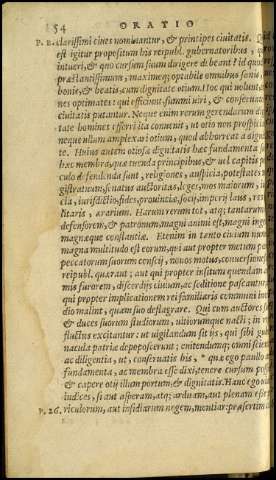 54 ORATIO
P. R. clarissimi ciues nominantur, & principes ciuitatis. Quid
est igitur propositum his reipubl. gubernatoribus, quod
intueri, & quo cursum suum dirigere debeant? id quod est
præstantissimum, maximeq; optabile omnibus sanis, &
bonis, & beatis, cum dignitate otium. Hoc qui volunt, om
nes optimates: qui efficiunt, summi uiri, & conseruatores
ciuitatis putantur. Neque enim rerum gerendarum digni
tate homines efferri ita conuenit, ut otio non prospiciant:
neque ullum amplexari otium, quod abhorreat a dignita
te. Huius autem otiosæ dignitatis hæc fundamenta sunt,
hæc membra, quæ tuenda principibus, & uel capitis peri
culo defendenda sunt, religiones, auspicia, potestates ma
gistratuum, senatus auctoritas, leges, mos maiorum, iudi
cia, iurisdictio, fides, prouinciæ, socij, imperij laus, res mi
litaris, ærarium. Harum rerum tot, atq; tantarum esse
defensorem, & patronum, magni animi est, magni ingenij,
magnæque constantiæ. Etenim in tanto ciuium numero
magna multitudo est eorum, qui aut propter metum pœnæ
peccatorum suorum conscij, nouos motus, conuersionesq;
reipubl. quærant; aut qui propter insitum quendam ani
mi furorem, discordijs ciuium, ac seditione pascantur; aut
qui propter implicationem rei familiaris communi incen
dio malint, quam suo deflagrare. Qui cum auctores sunt
& duces suorum studiorum, uitiorumque nacti; in rep.
fluctus excitantur: ut uigilandum sit his, qui sibi guber
nacula patriæ depoposcerunt; enitendumq; omni scientia,
ac diligentia, ut, conseruatis his, * quæ ego paullo ante
fundamenta, ac membra esse dixi, tenere cursum possint,
& capere otij illum portum, & dignitatis. Hanc ego uiam
iudices, si aut asperam, atq; arduam, aut plenam esse pe
P. 26. riculorum, aut insidiarum negem, mentiar: præsertim cum